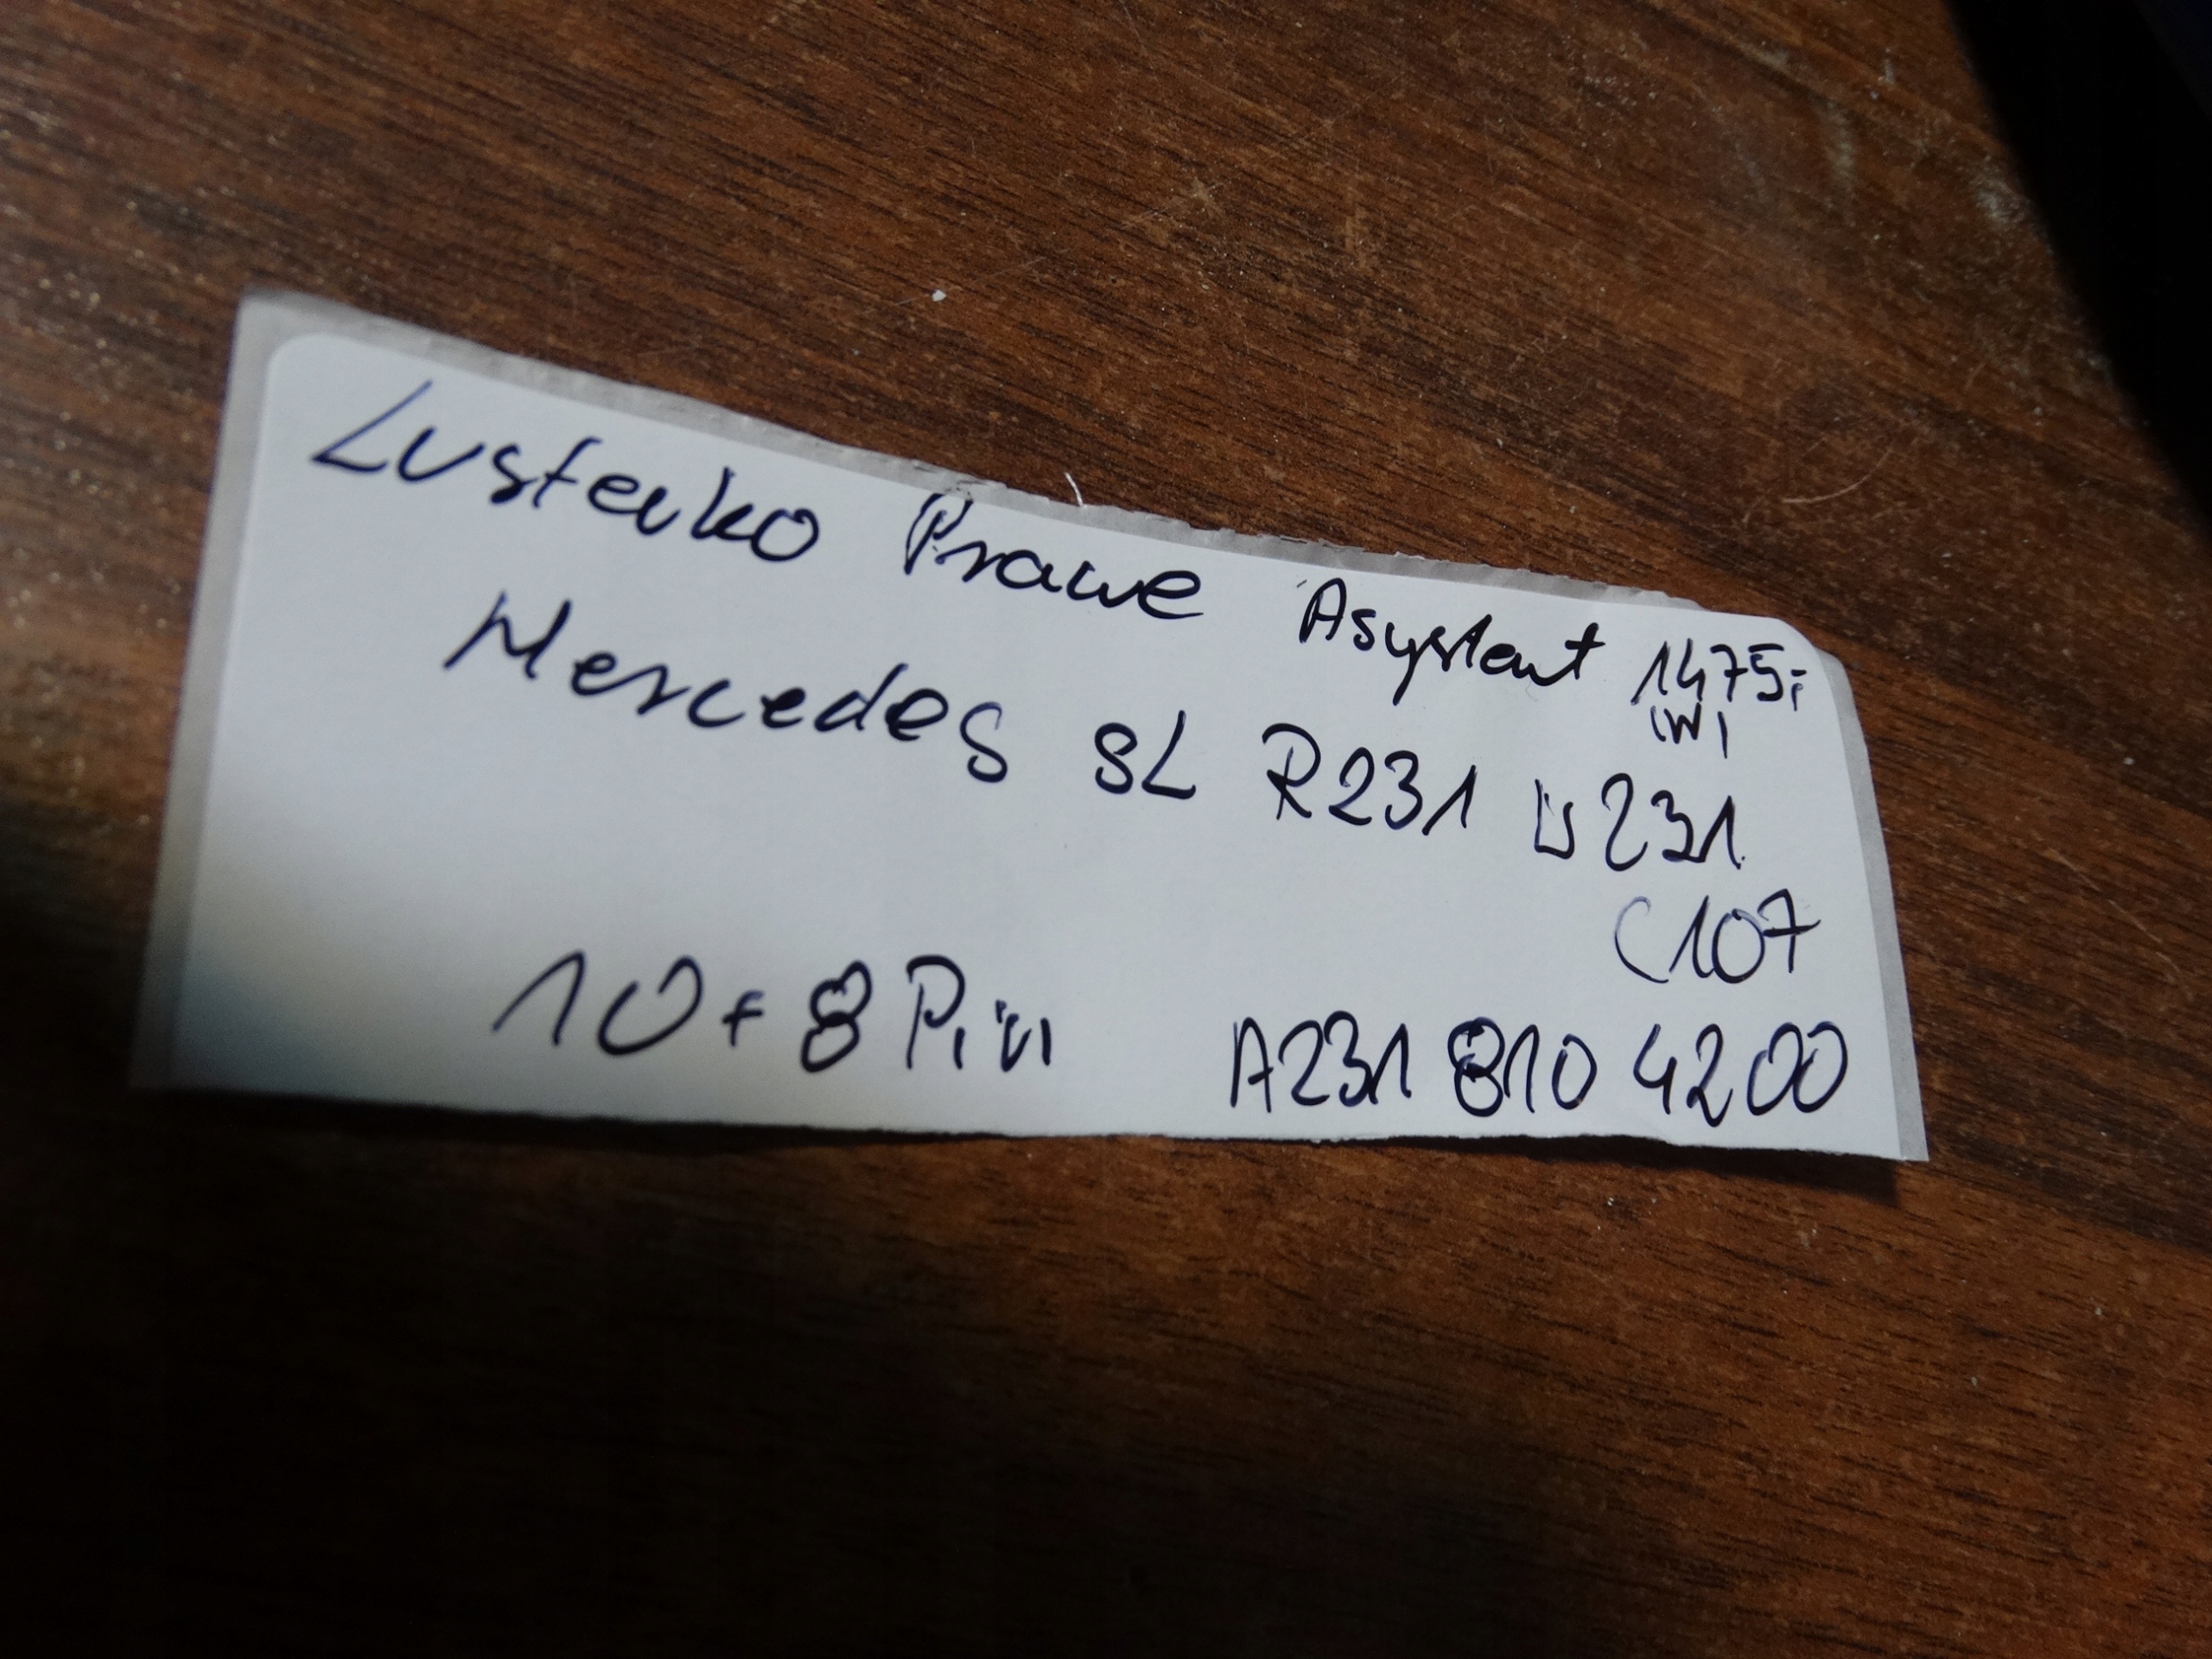 Lusterko Prawe Asystent 1475;
(W)
Mercedes SL R231 W231
C107
10+8 Pin A231 810 4200